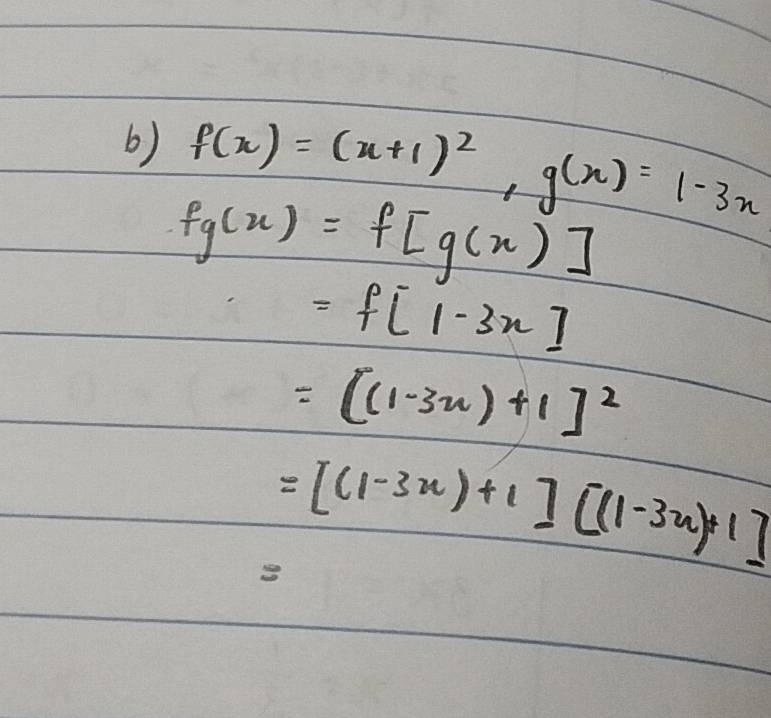 b) f(x) = (x+1)², g(x) = 1-3x
fg(x) = f[g(x)]
= f[1-3x]
= [(1-3x)+1]²
= [(1-3x)+1][(1-3x)+1]
=